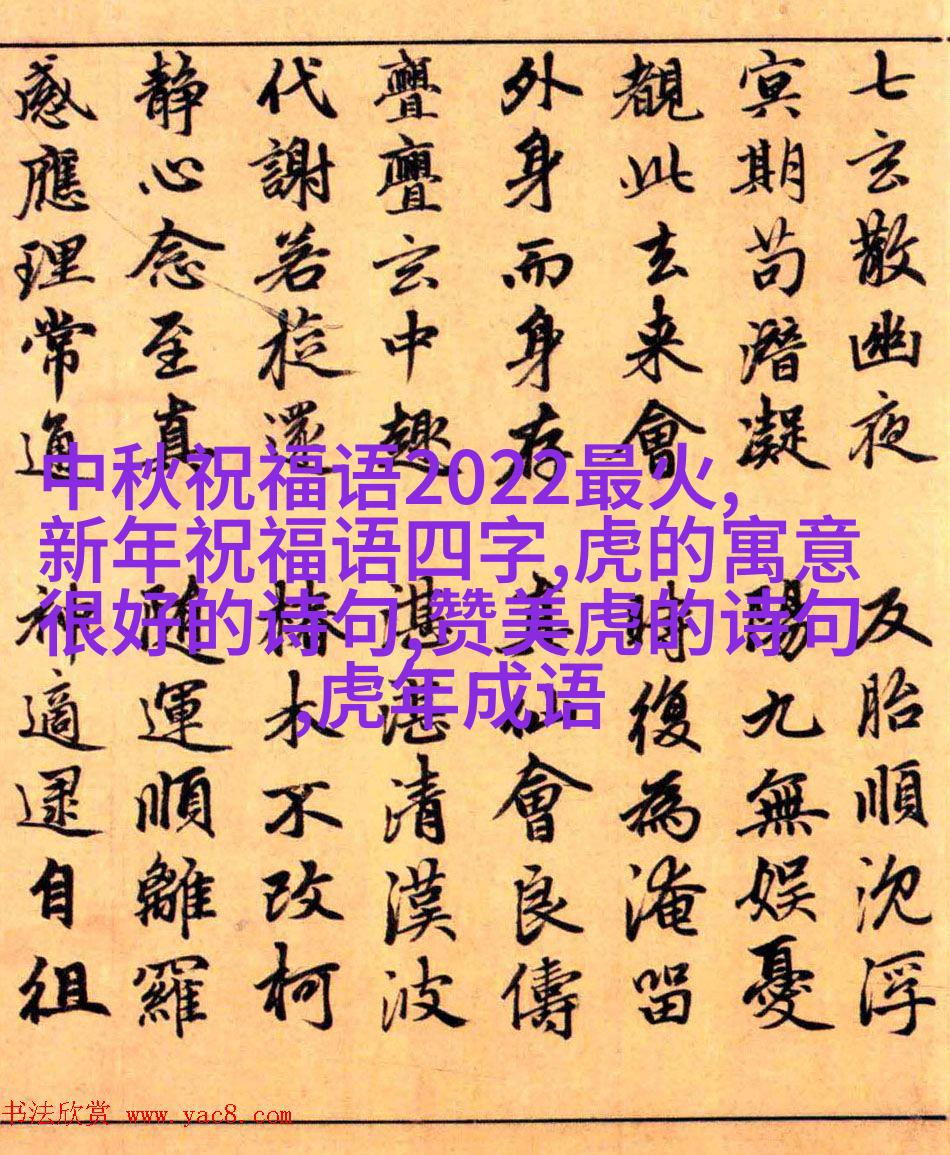 七玄散幽夜 反胎順沉浮
冥期苟潛凝 陽九無娱憂
覩此去来會 時復為淹留
外身而身存 真仙會良儔
亹亹玄中趣 湛湛清漢波
代謝若旋還 椿木不改柯
静心念至真 隨運順離羅
感應理常通 神適逮自徂
中秋祝福语2022最火,
新年祝福语四字,虎的寓意
很好的诗句,赞美虎的诗句
,虎年成语
书法欣赏 www.yac8.com